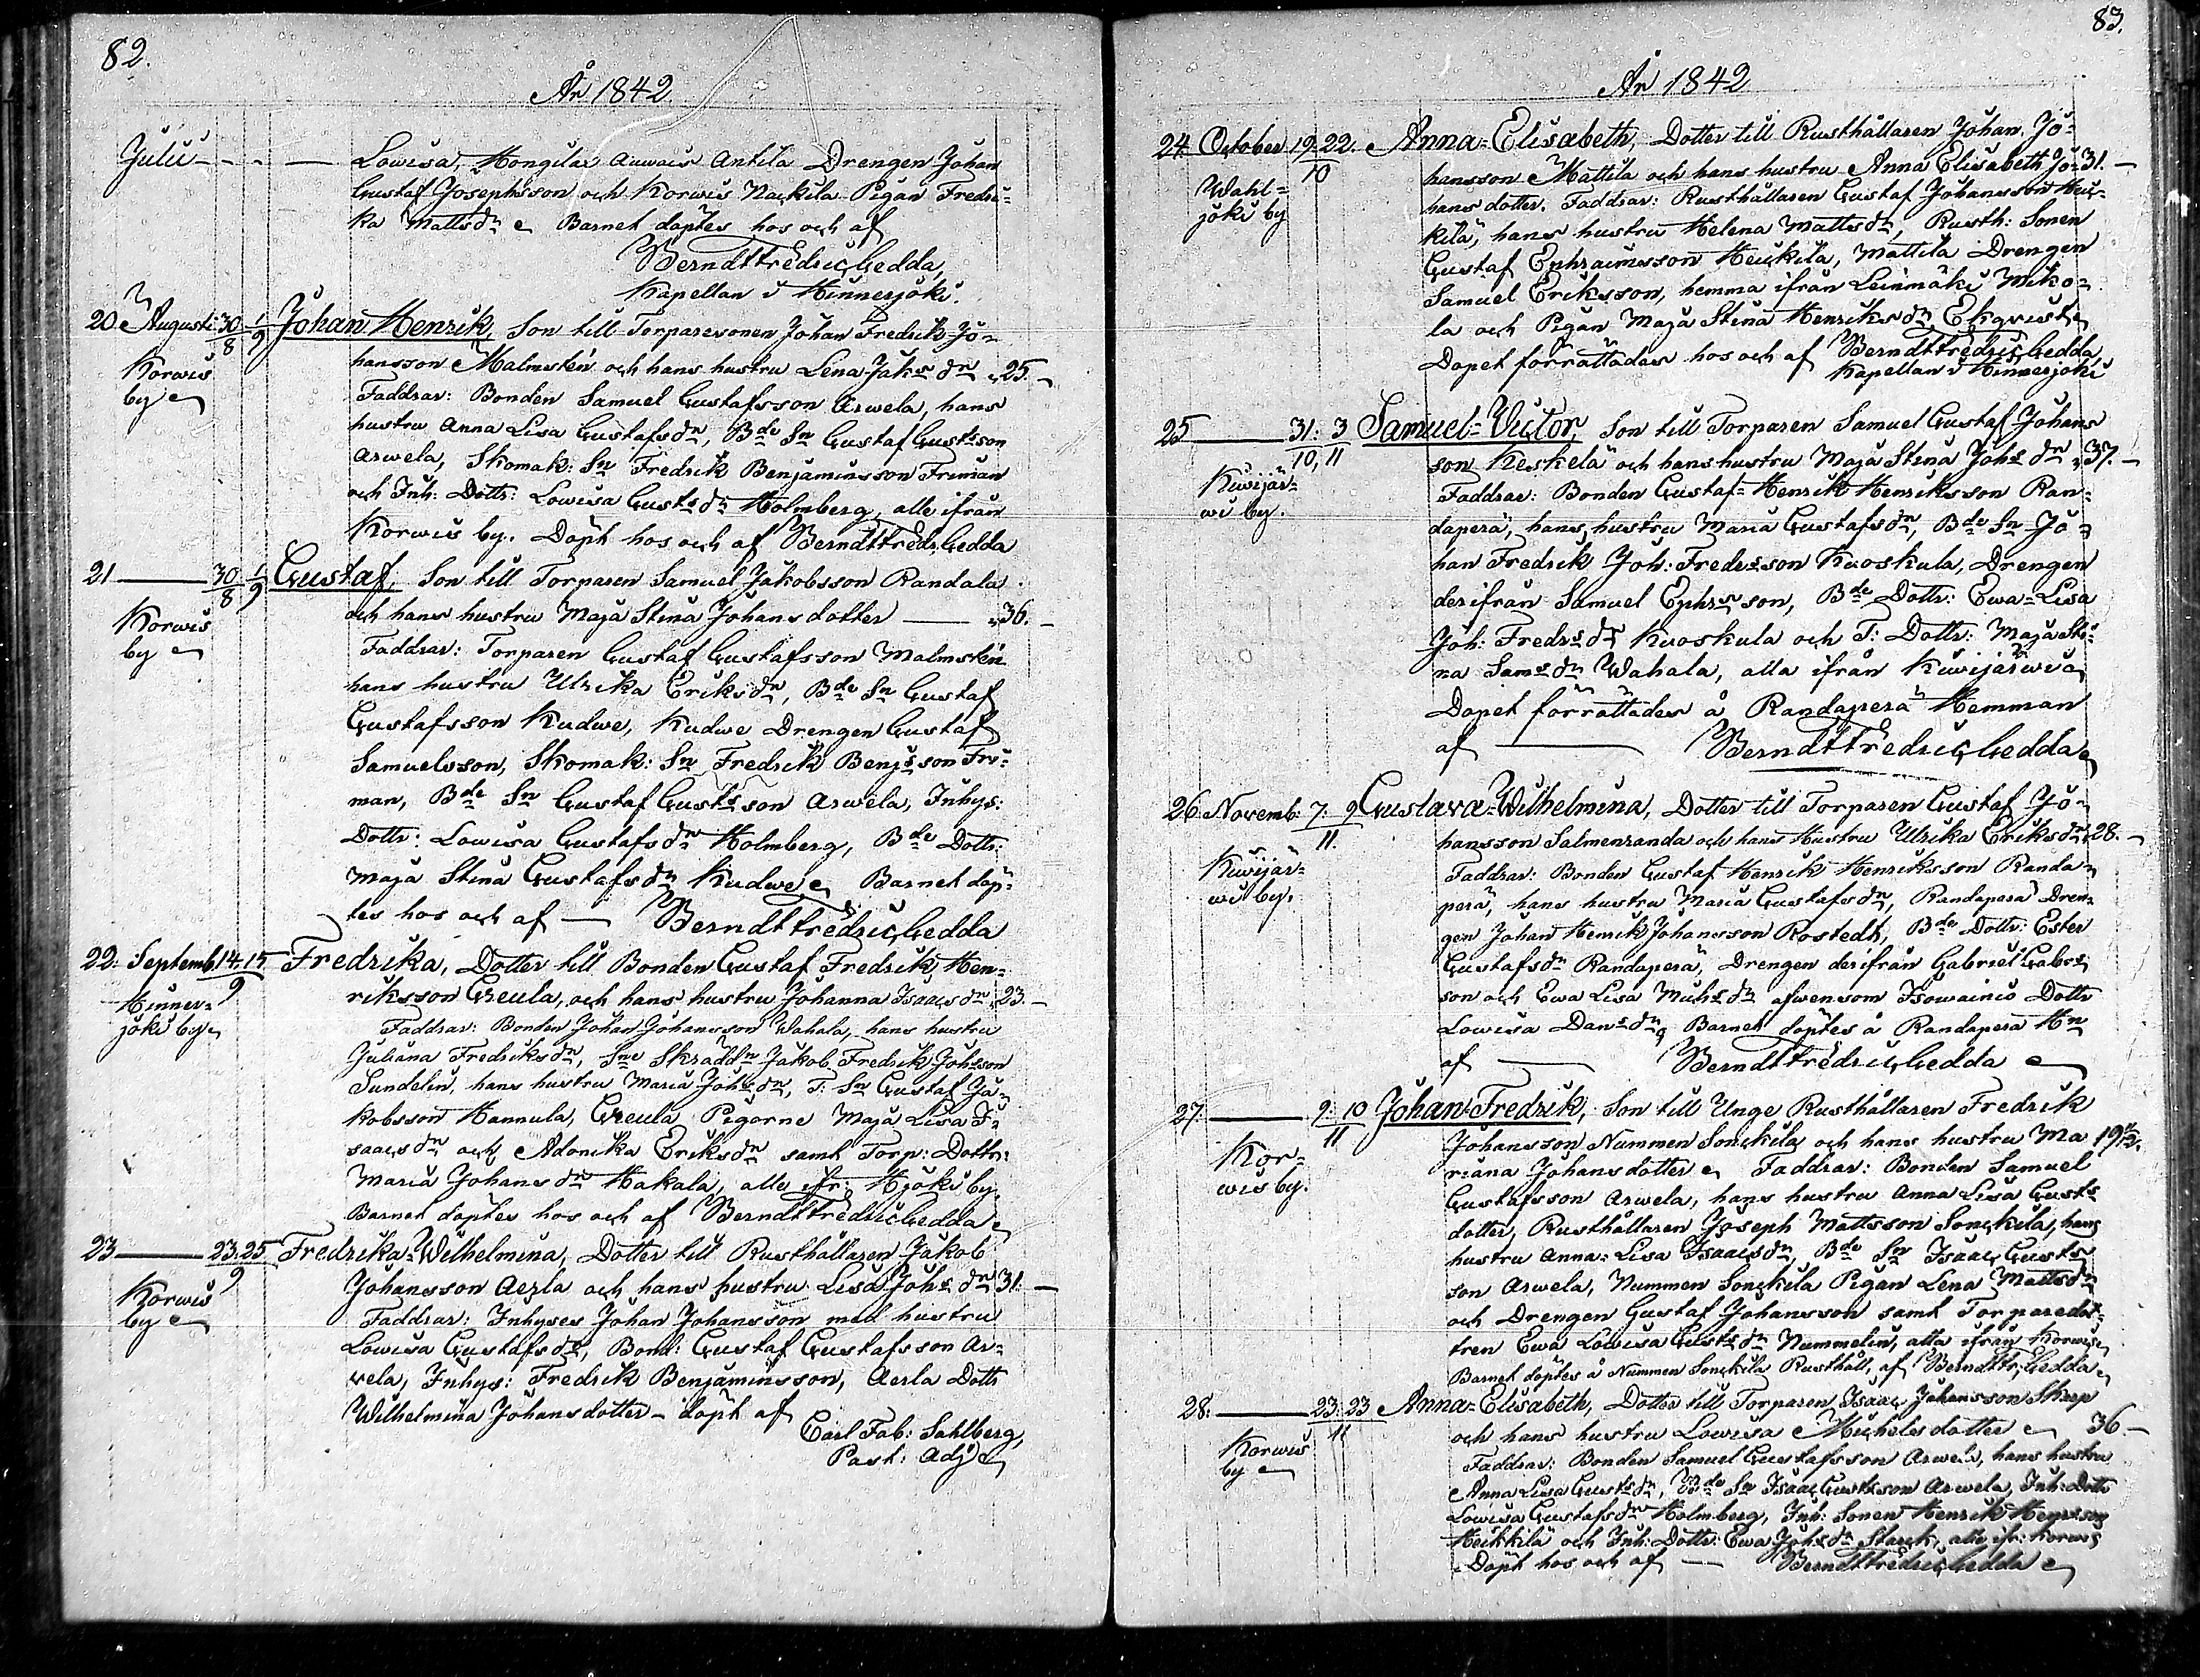 82.
År 1842.
Julii - - - — Lowisa, Hongilax Auwais Antila Drengen Johan
Gustaf Josephsson och Korwis Nackila Pigan Fredri=
ka Mattsdr. Barnet döptes hos och af
Berndt Fredric Gedda,
Kapellan i Hinnerjoki.
20 Augusti 30/8 1/9 Johan Henrik, Son till Torparesonen Johan Fredrik Jo=
hansson Malmstén och hans hustru Lena Jaks dr 25.
Korwis by
Faddrar: Bonden Samuel Gustafsson Arwela, hans
hustru Anna Lisa Gustafsdr, Bde Sn Gustaf Gustsson
Arwela, Skomak: Sn Fredrik Benjaminsson Friman
och Inh: Dottr: Lowisa Gusts dr Holmberg, alle ifrån
Korwis by. Döpt hos och af Berndt Fredr Gedda
21 — 30/8 1/9 Gustaf, Son till Torparen Samuel Jakobsson Randala
och hans hustru Maja Stina Johansdotter — 36.
Korwis by
Faddrar: Torparen Gustaf Gustafsson Malmstén
hans hustru Ulrika Eriksdr, Bde Sn Gustaf
Gustafsson Kudwe, Kudwe Drengen Gustaf
Samuelsson, Skomak: Sn Fredrik Benjs son Fri=
man, Bde Sn Gustaf Gusts son Arwela, Inhys:
Dottr: Lowisa Gustafsdr Holmberg, Bde Dottr:
Maja Stina Gustafsdr Kudwe. Barnet döp=
tes hos och af — Berndt Fredric Gedda
22: Septemb. 14. 15/9 Fredrika, Dotter till Bonden Gustaf Fredrik Hen=
riksson Greula, och hans hustru Johanna Isaacsdr 23.
Hinner=
joki by
Faddrar: Bonden Johan Johansson Wahala, hans hustru
Juliana Fredriksdr, Sne Skräddn Jakob Fredrik Johsson
Sundelin, hans hustru Maria Johsdr, T: Sn Gustaf Ja=
kobsson Hannula, Greula Pigorne Maja Lisa I=
saacsdr och Adonika Eriksdr samt Torp: Dottr:
Maria Johansdr Hakala, alle ifr: Hjoki by,
Barnet döptes hos och af Berndt Fredric Gedda
23 — 23. 25/9 Fredrika=Wilhelmina, Dotter till Rusthållaren Jakob
Johansson Aerla och hans hustru Lisa Johs dr 31.
Korwis by
Faddrar: Inhyses Johan Johansson med hustru
Lowisa Gustafsdr, Bond: Gustaf Gustafsson Ar=
vela, Inhys: Fredrik Benjaminsson, Aerla Dottr
Wilhelmina Johansdotter - döpt af
Carl Fab: Sahlberg,
Past: Adj
83.
År 1842
24. October 19. 22./10 Anna=Elisabeth, Dotter till Rusthållaren Johan Jo=
hansson Mattila och hans hustru Anna Elisabeth Jo= 31.
Wahl=
joki by
hans dotter. Faddrar: Rusthållaren Gustaf Johansson Heic=
kilä, hans hustru Helena Mattsdr, Rusth: Sonen
Gustaf Ephraimsson Heickilä, Mattila Drengen
Samuel Eriksson, hemma ifrån Leinmäki Miko=
la och Pigan Maja Stina Henriksdr Ekqvist
Dopet förrättades hos och af Berndt Fredric Gedda
Kapellan i Hinnerjoki
25 — 31: 3/10, 11 Samuel=Victor, Son till Torparen Samuel Gustaf Johans
son Keskelä och hans hustru Maja Stina Johs dr 37.
Kiwijär=
wi by.
Faddrar: Bonden Gustaf=Henrik Henriksson Ran=
daperä, hans hustru Maria Gustafsdr, Bde Sn Jo=
han Fredrik Joh: Fredrsson Kuoskula, Drengen
derifrån Samuel Ephrsson, Bde Dottr: Ewa=Lisa
Joh: Fredrs dr Kuoskula och T: Dottr: Maja Sti=
na Sams dr Wahala, alla ifrån Kiwijärwi
Dopet förrättades å Randaperä Hemman
af — Berndt Fredric Gedda
26. Novemb: 7. 9/11. Gustava=Wilhelmina, Dotter till Torparen Gustaf Jo=
hansson Salmenranda och hans Hustru Ulrika Eriksdr 28.
Kiwijär=
wi by.
Faddrar: Bonden Gustaf Henrik Henriksson Randa=
perä, hans hustru Maria Gustafsdr, Randaperä Dren=
gen Johan Henrik Johansson Rostedt, Bde Dottr: Ester
Gustafsdr Randaperä, Drengen derifrån Gabriel Gabrs
son och Ewa Lisa Michs dr äfwensom Isowainio Dottr
Lowisa Dans dr, Barnet döptes å Randapera Hn
af — Berndt Fredric Gedda
27. — 9. 10/11 Johan=Fredrik, Son till Unge Rusthållaren Fredrik
Johansson Nummen Sonckila och hans hustru Ma
riana Johansdotter. Faddrar: Bonden Samuel
Kor=
wis by.
Gustafsson Arwela, hans hustru Anna Lisa Gusts
dotter, Rusthållaren Joseph Mattsson Sonckila, hans
hustru Anna=Lisa Isaacsdr, Bde Sn Isaac Gusts
son Arwela, Nummen Sonckila Pigan Lena Mattsdr
och Drengen Gustaf Johansson samt Torparedot=
tren Ewa Lowisa Gusts dr Nummelin, alla ifrån Korwis
Barnet döptes å Nummen Sonckila Rusthåll, af Berndt Fr. Gedda
28: — 23. 23/11 Anna=Elisabeth, Dotter till Torparen Isaac Johansson Skarp
och hans hustru Lowisa Michelsdotter 36
Korwis
by
Faddrar: Bonden Samuel Gustafsson Arwela, hans hustru
Anna Lisa Gusts dr, Bde Sn Isaac Gustsson Arwela, Inh: Dottr
Lowisa Gustafsdr Holmberg, Inh: Sonen Henrik Henrsson
Heikkilä och Inh: Dottr: Ewa Johs dr Starck, alle ifr: Korwis
Döpt hos och af — Berndt Fredric Gedda